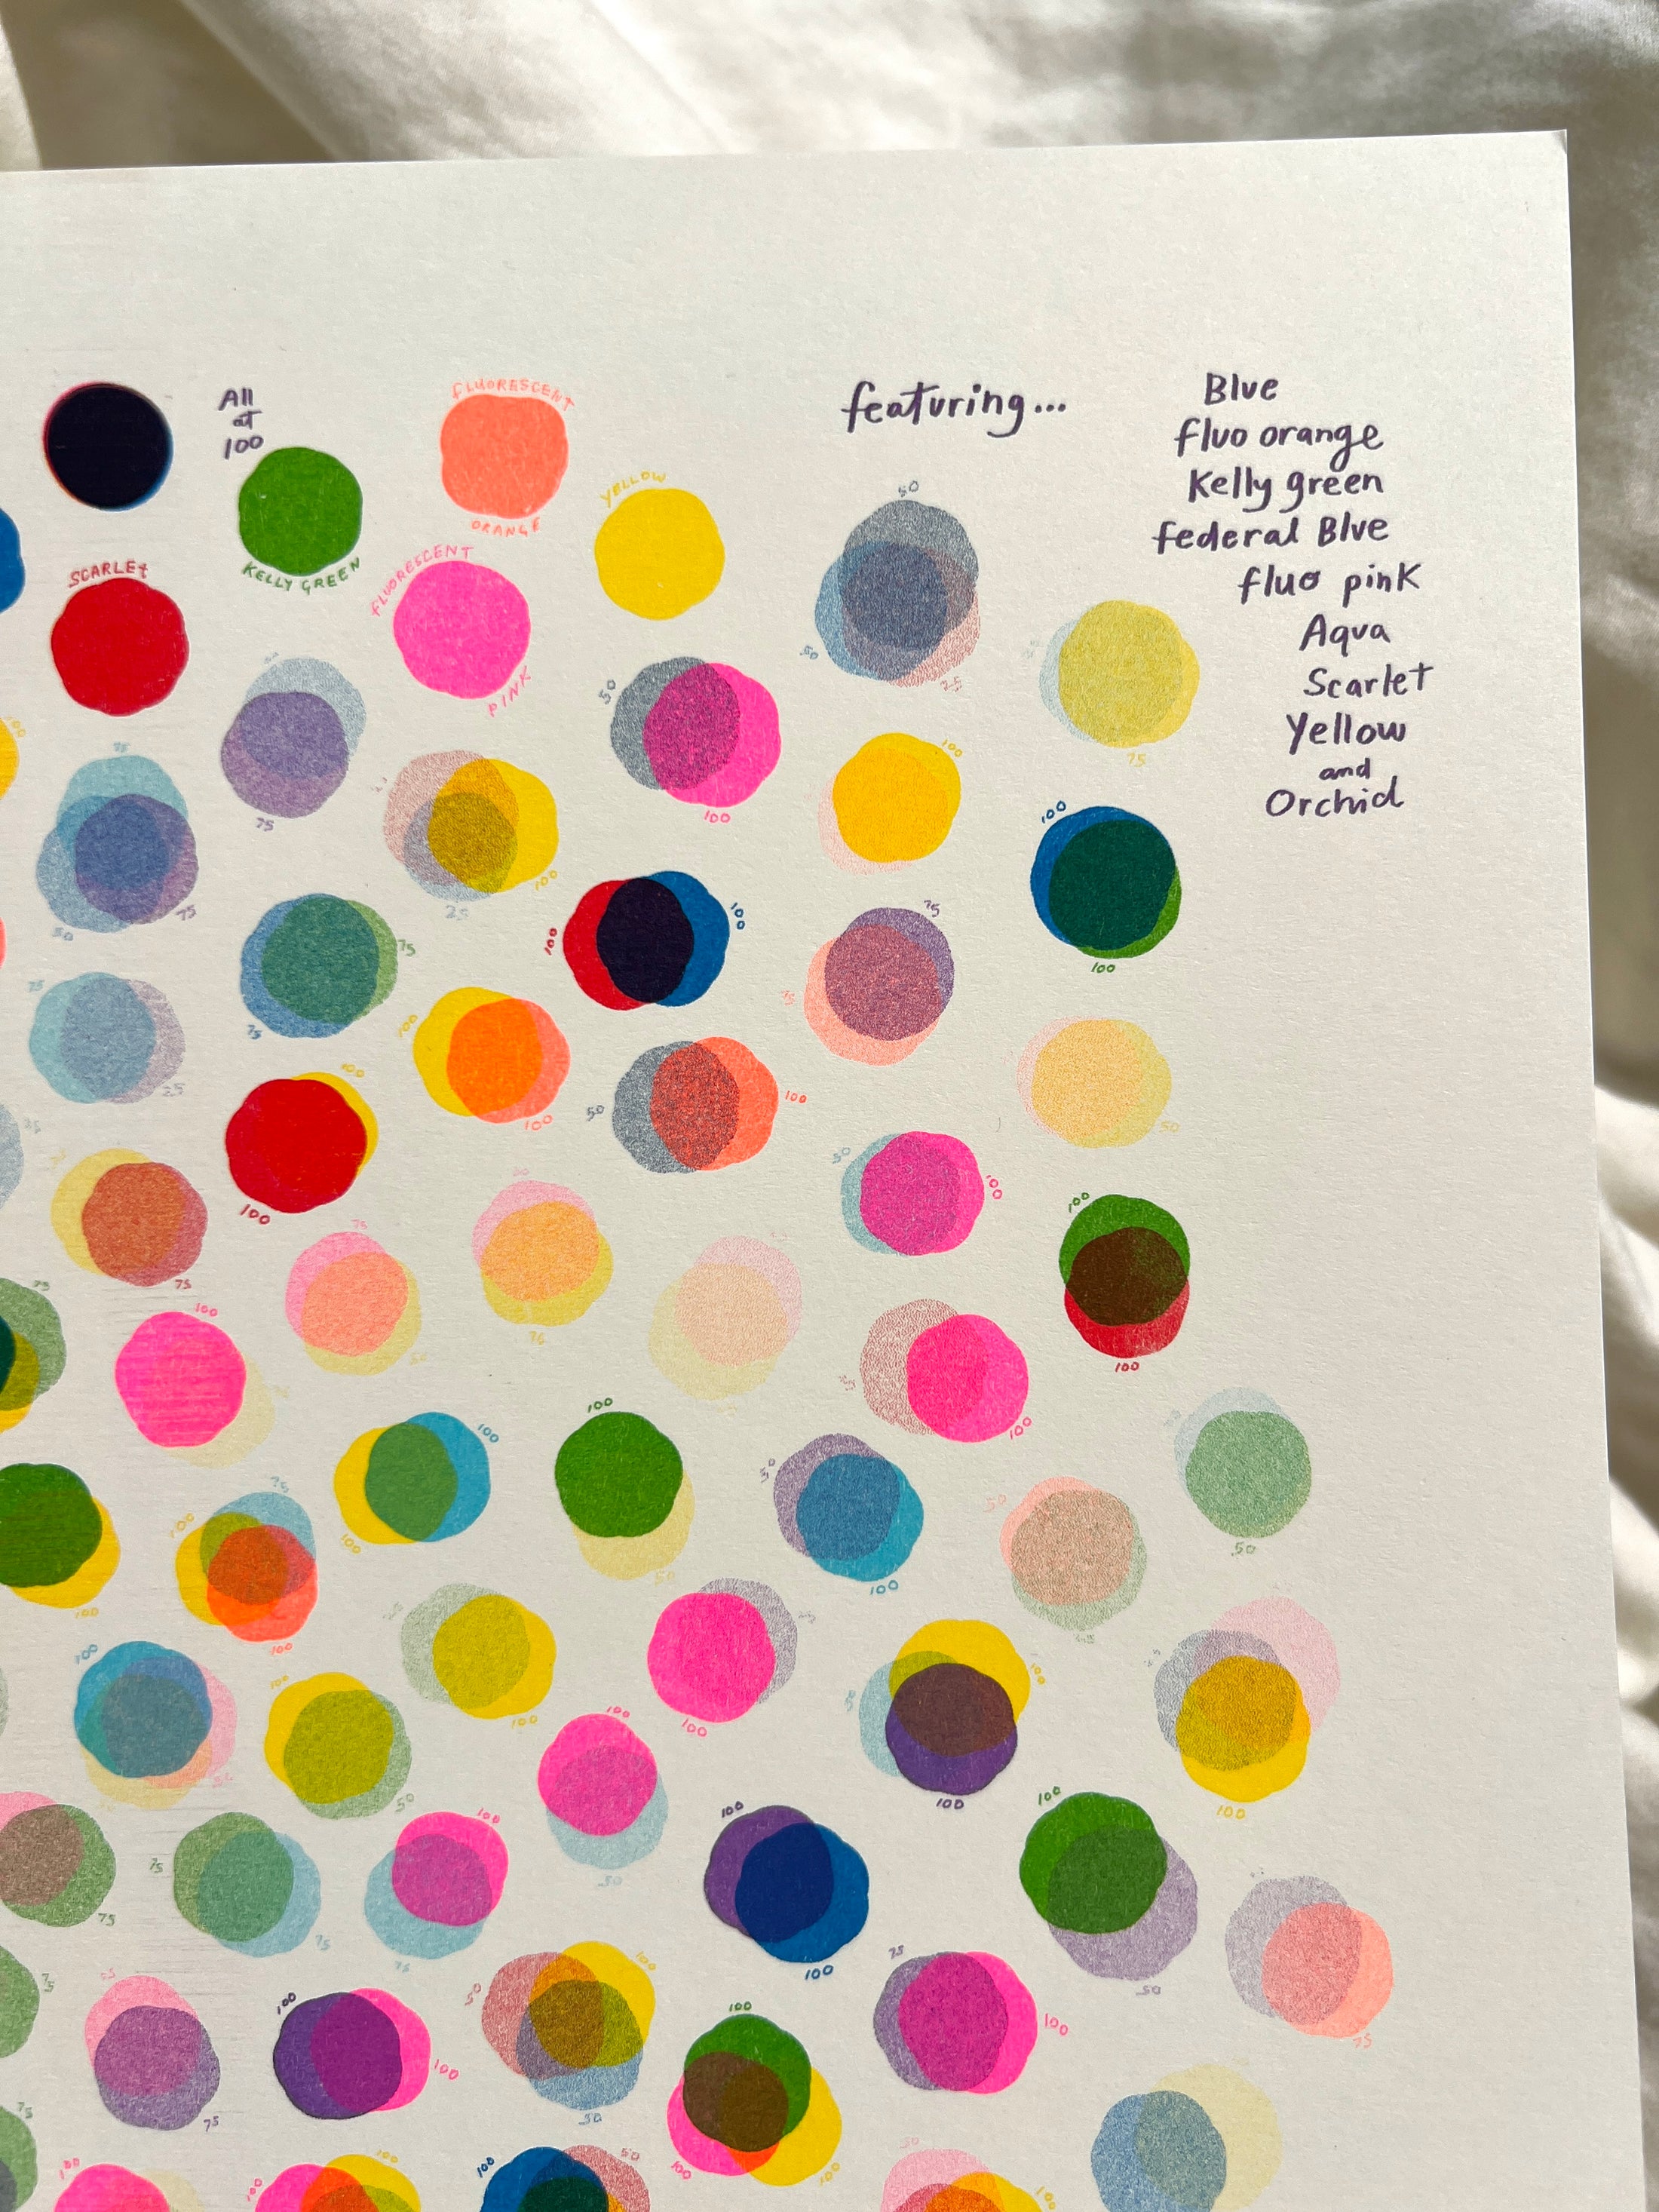 All
at
100
FLUORESCENT
ORANGE
featuring...
Blue
fluo orange
Kelly green
federal Blve
fluo pink
Aqua
Scarlet
Yellow
and
Orchid
KELLY GREEN
YELLOW
SCARLET
FLUORESCENT
PINK
50
50
25
75
50
100
100
75
75
50
100
25
100
100
100
100
100
75
75
75
75
75
25
100
100
50
100
100
100
50
50
100
100
100
75
75
50
75
100
100
100
100
100
50
100
50
100
50
50
100
75
100
100
100
100
50
100
100
100
50
100
100
50
100
100
75
75
100
75
50
100
100
50
75
100
100
50
100
50
75
100
100
75
100
100
100
100
50
100